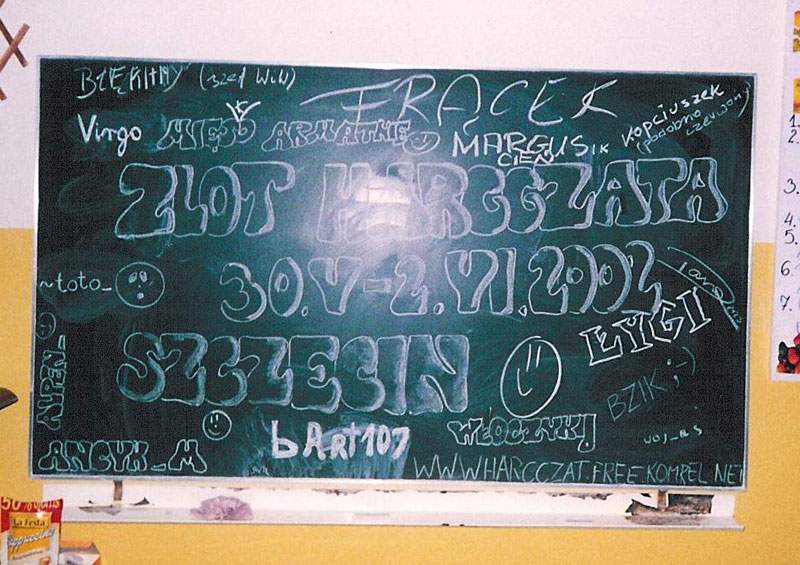 FRĄCEK
Virgo MIĘSO ARMATNIE
MARGUSIK
CIEŃ
Kopciuszek
(podobno
czerwony)
ZLOT HARCCZATA
~toto_
30.V-2.VI.2002
ŁYGI
SZCZECIN
BZIK ;-)
WŁÓCZYKIJ
bArt107
ANCYK_M
WWW.HARCCZAT.FREE.KOMPEL.NET
50% GRATIS
La Festa
Cappuccino
1.
2.
3.
4.
5.
6.
7.